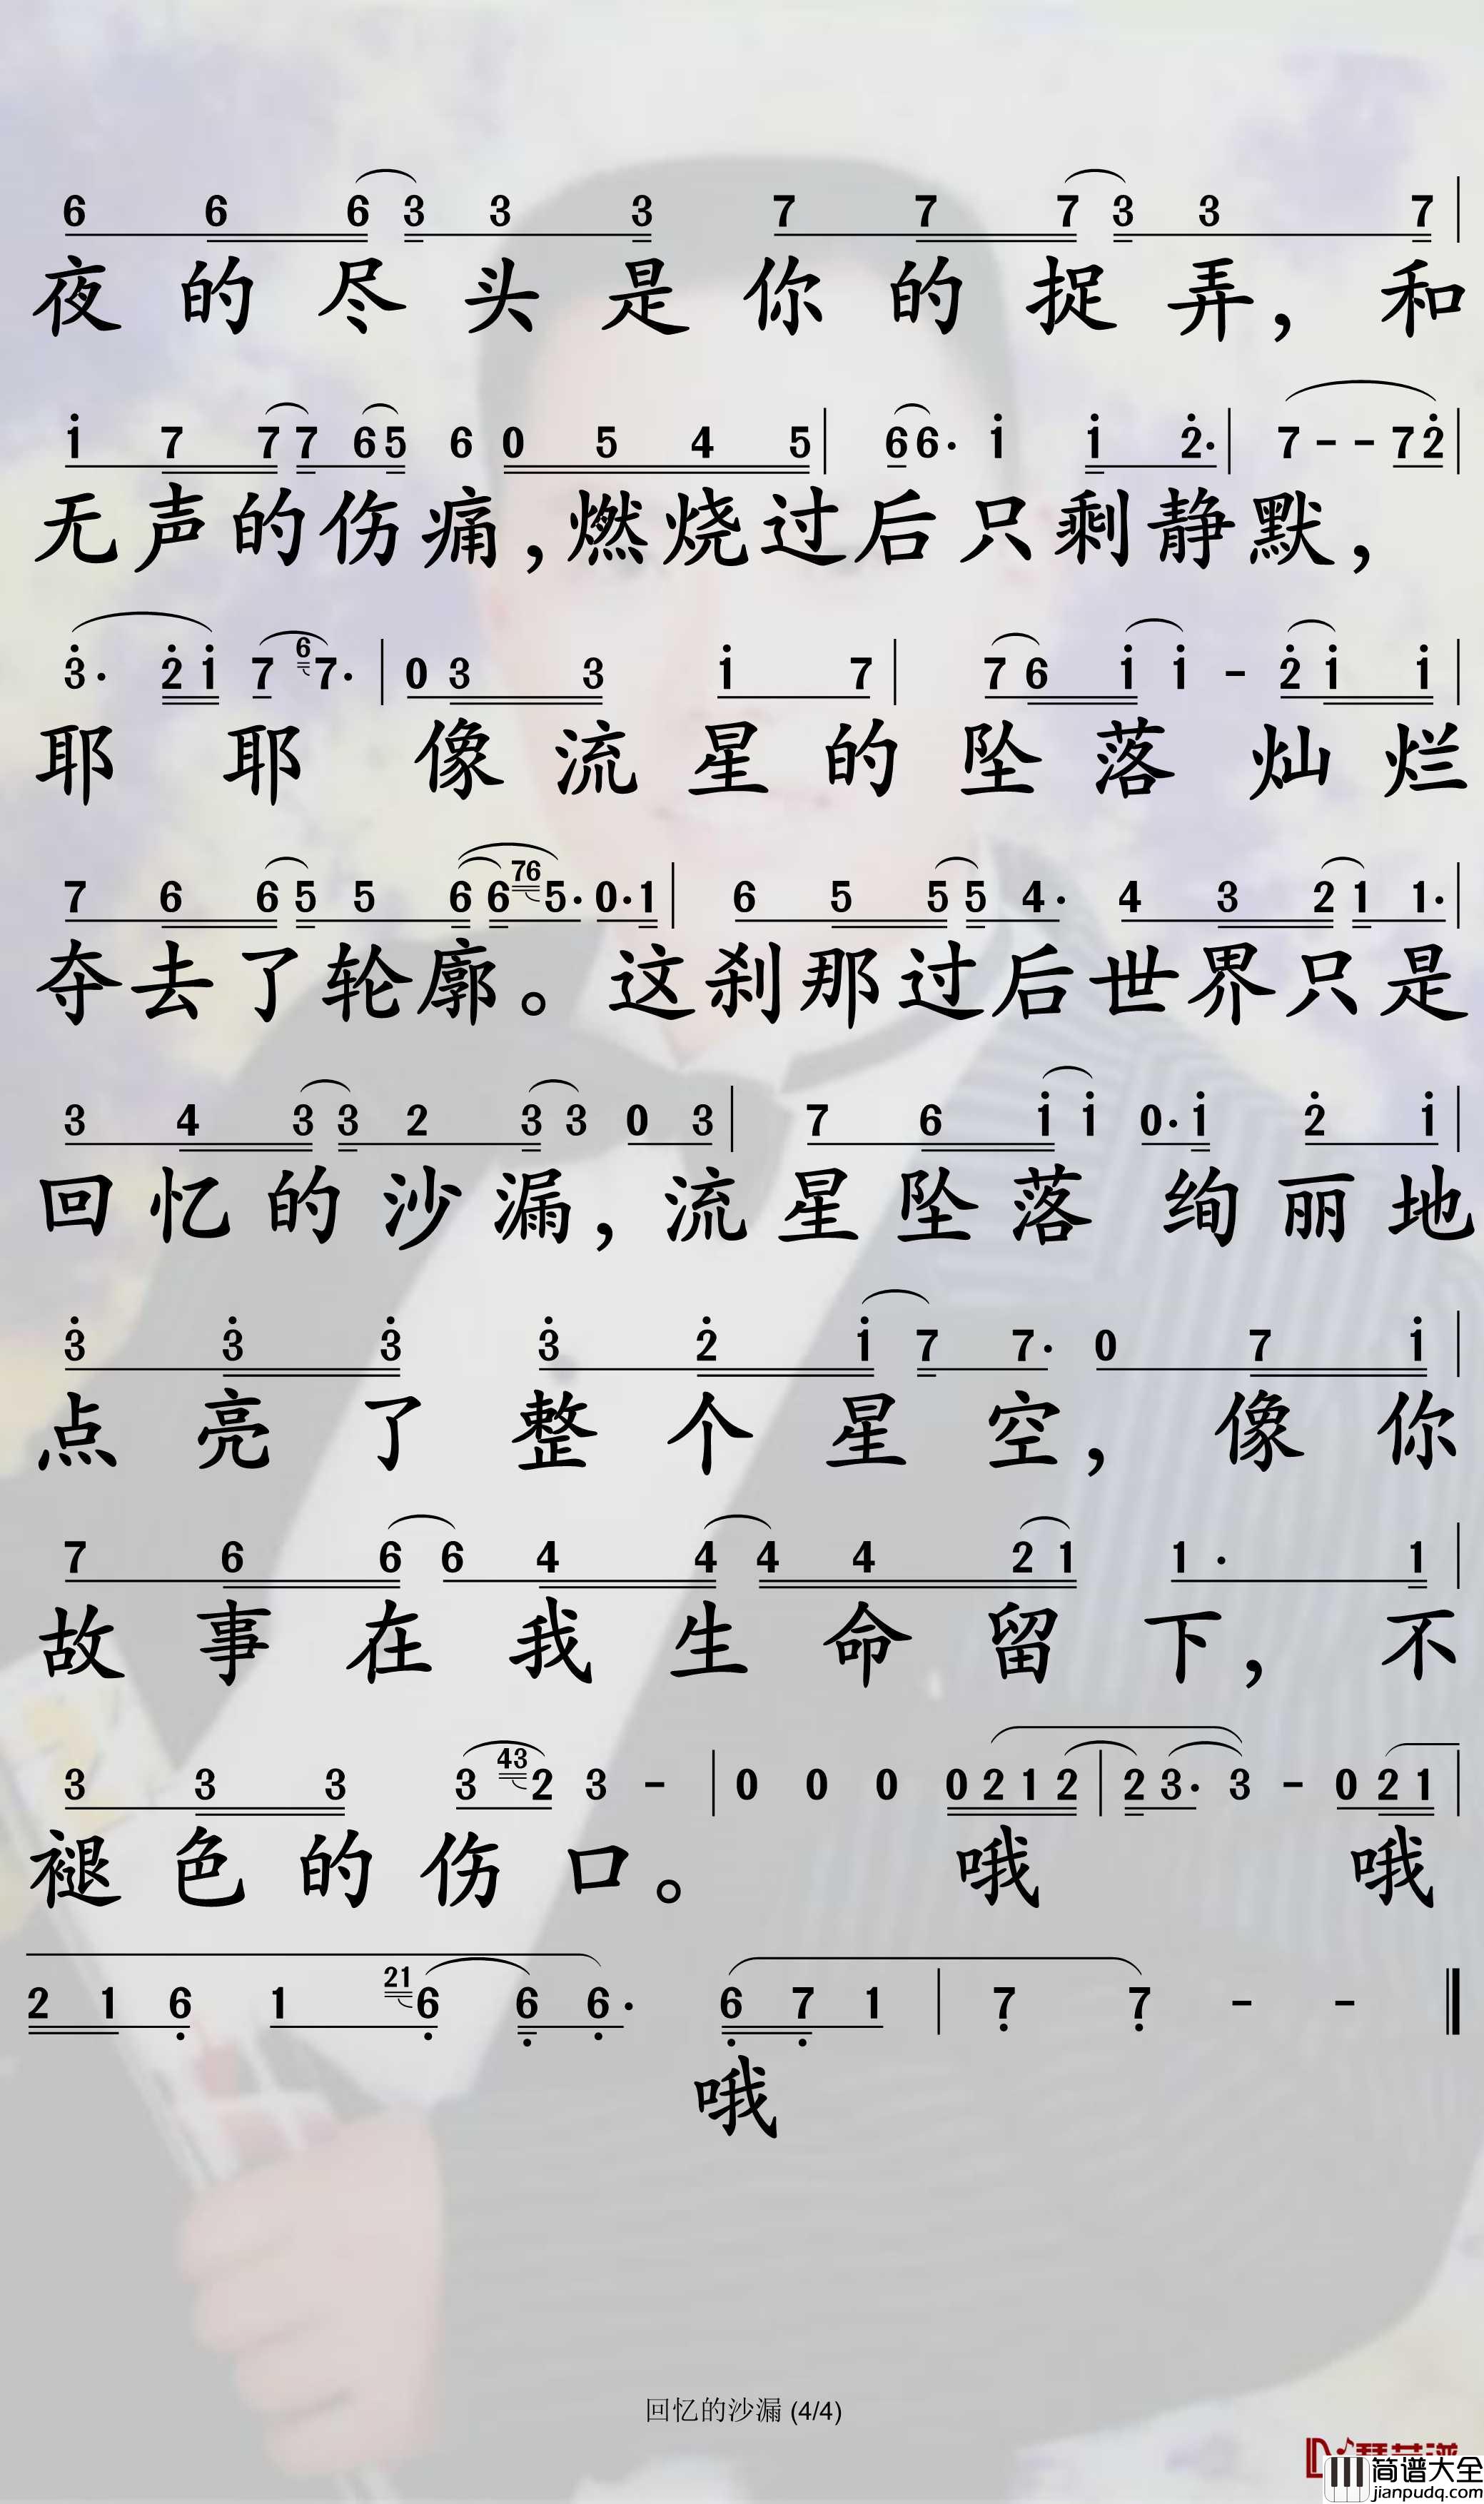 6 6 6 3 3 3 7 7 7 3 3 7
夜的尽头是你的捉弄，和
1 7 7 7 6 5 6 0 5 4 5 6 6· 1 1 2· 7 - - 7 2
无声的伤痛，燃烧过后只剩静默，
3· 2 1 7 6 7· 0 3 3 1 7 7 6 1 1 - 2 1 1
耶耶像流星的坠落灿烂
7 6 6 5 5 6 6 76 5· 0·1 6 5 5 5 4· 4 3 2 1 1·
夺去了轮廓。这刹那过后世界只是
3 4 3 3 2 3 3 0 3 7 6 1 1 0·1 2 1
回忆的沙漏，流星坠落绚丽地
3 3 3 3 2 1 7 7· 0 7 1
点亮了整个星空，像你
7 6 6 6 4 4 4 4 2 1 1· 1
故事在我生命留下，不
3 3 3 3 43 2 3 - 0 0 0 0 2 1 2 2 3· 3 - 0 2 1
褪色的伤口。哦哦
2 1 6 1 21 6 6 6· 6 7 1 7 7 - -
哦
回忆的沙漏 (4/4)
简谱大全
jianpudq.com